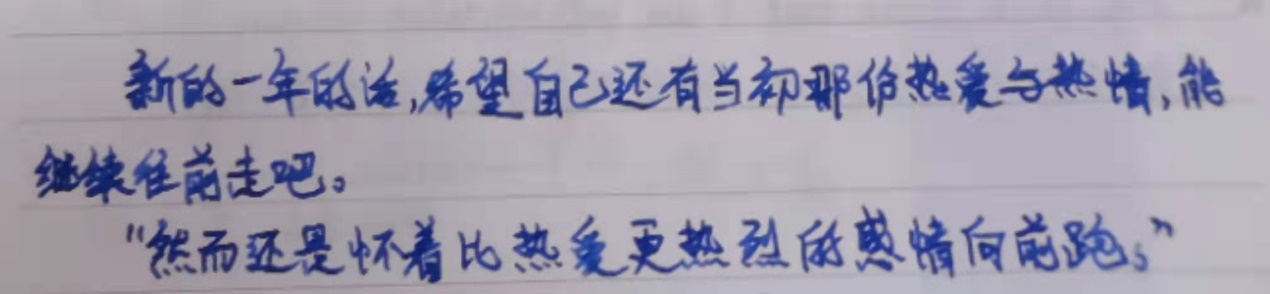 新的一年的话,希望自己还有当初那份热爱与热情,能
继续往前走吧。
“然而还是怀着比热爱更热烈的感情向前跑。”